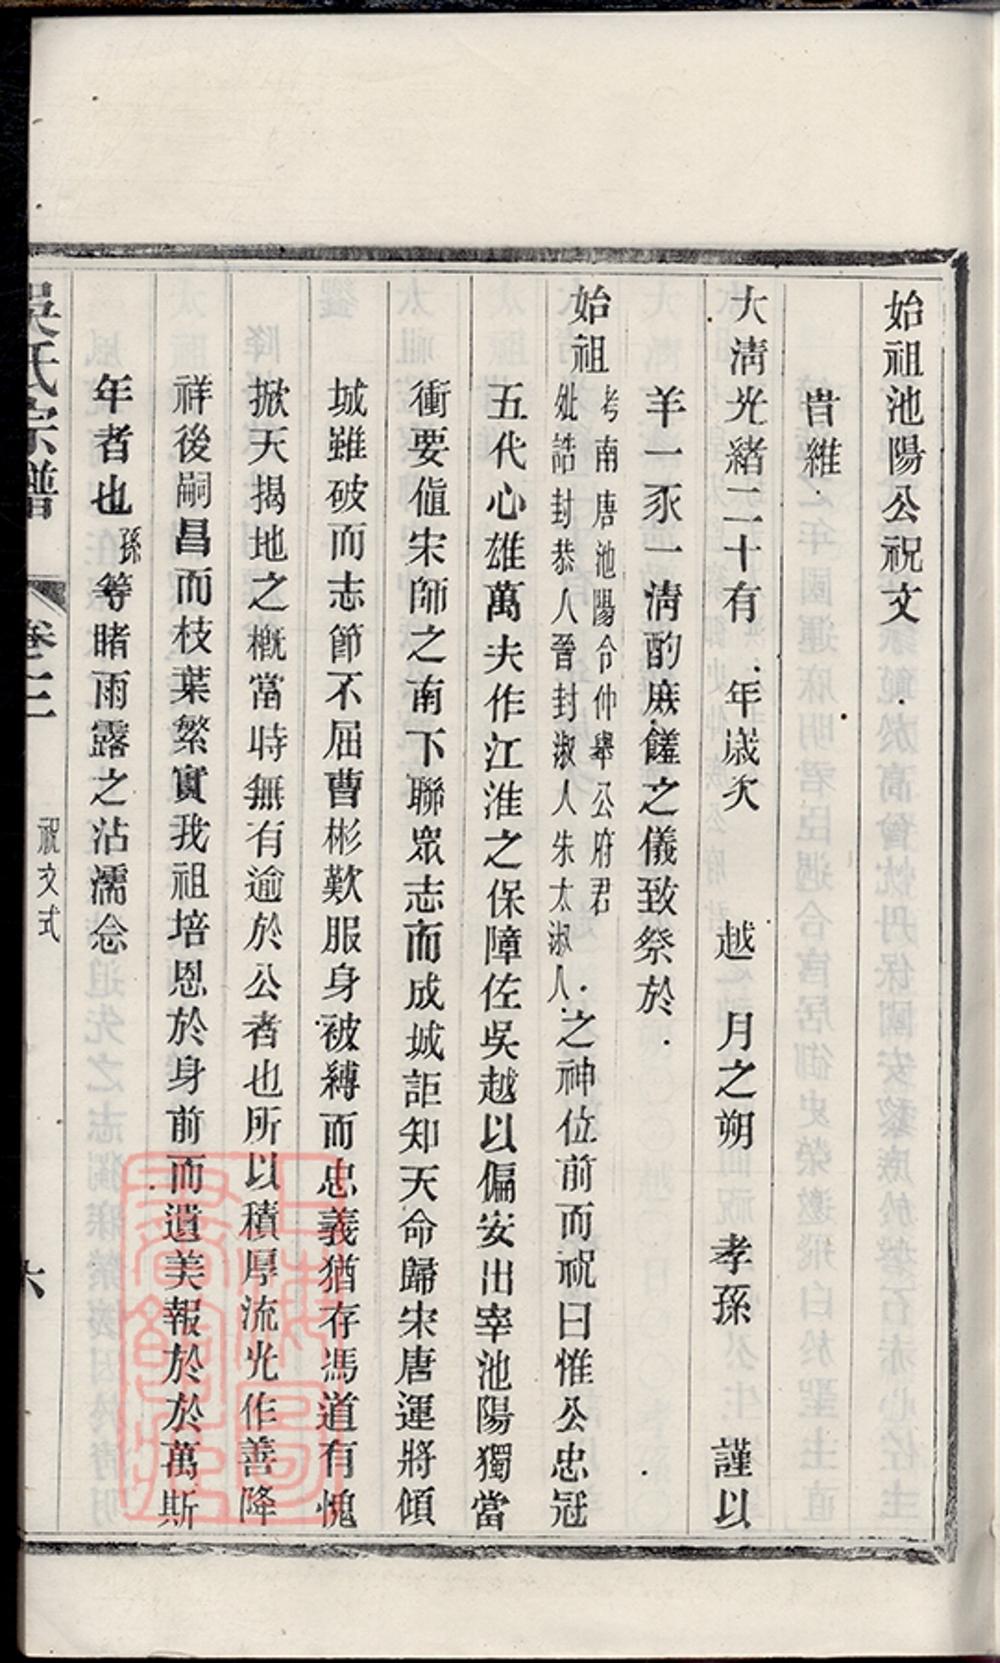 始祖池陽公祝文
昔維
大淸光緒二十有 年歲次 越 月之朔 孝孫 謹以
羊一豕一淸酌庶饈之儀致祭於
始祖考南唐池陽令仲舉公府君
妣誥封恭人晉封淑人朱太淑人之神位前而祝曰惟公忠冠
五代心雄萬夫作江淮之保障佐吳越以偏安出宰池陽獨當
衝要値宋師之南下聯眾志而成城詎知天命歸宋唐運將傾
城雖破而志節不屈曹彬歎服身被縛而忠義猶存馮道有愧
掀天揭地之概當時無有逾於公者也所以積厚流光作善降
祥後嗣昌而枝葉繁實我祖培恩於身前而遺美報於於萬斯
年者也孫等睹雨露之沾濡念
吳氏宗譜 卷十二 祝文式 六